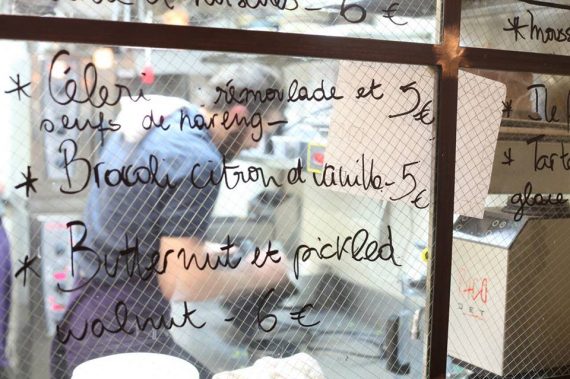 6 €
* Céleri rémoulade et 5€
oeufs de hareng -
* Brocoli citron et vanille - 5€
* Butternut et pickled
walnut - 6 €
* Mouss
* De
* Tart
glace